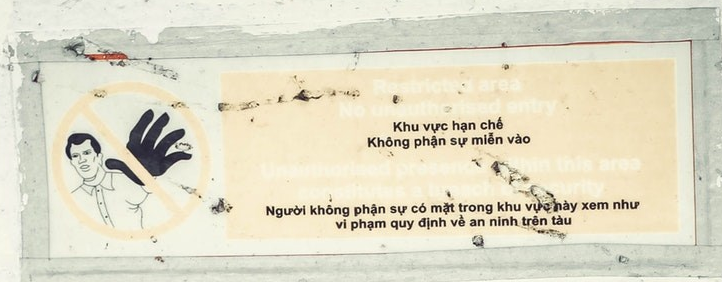 Restricted area
No unauthorised entry
Khu vực hạn chế
Không phận sự miễn vào
Unauthorised presence within this area
constitutes a breach of security
Người không phận sự có mặt trong khu vực này xem như
vi phạm quy định về an ninh trên tàu